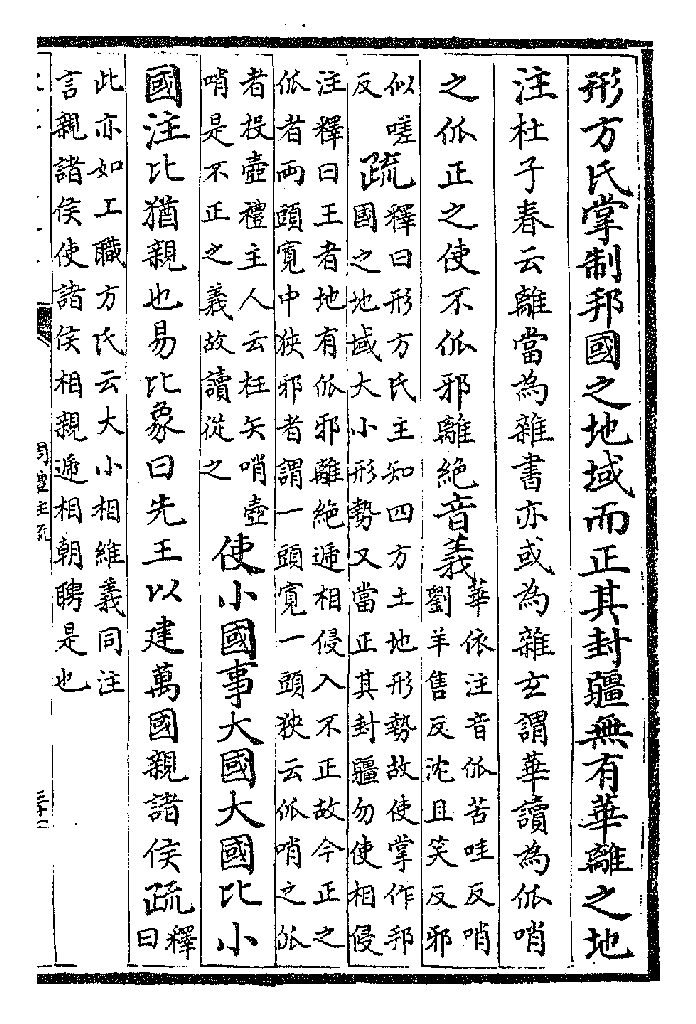 形方氏掌制邦國之地域而正其封疆無有華離之地
注杜子春云離當為雜書亦或為雜玄謂華讀為㐵哨
之㐵正之使不㐵邪離絶音義華依注音㐵苦哇反哨
劉羊售反沈且笑反邪
似嗟
反疏釋曰形方氏主知四方土地形勢故使掌作邦
國之地域大小形勢又當正其封疆勿使相侵
注釋曰王者地有㐵邪離絶遞相侵入不正故今正之
㐵者兩頭寛中狹邪者謂一頭寛一頭狹云㐵哨之㐵
者投壺禮主人云枉矢哨壺
哨是不正之義故讀從之使小國事大國大國比小
國注比猶親也易比象曰先王以建萬國親諸侯疏釋
曰
此亦如上職方氏云大小相維義同注
言親諸侯使諸侯相親遞相朝聘是也
周禮注疏